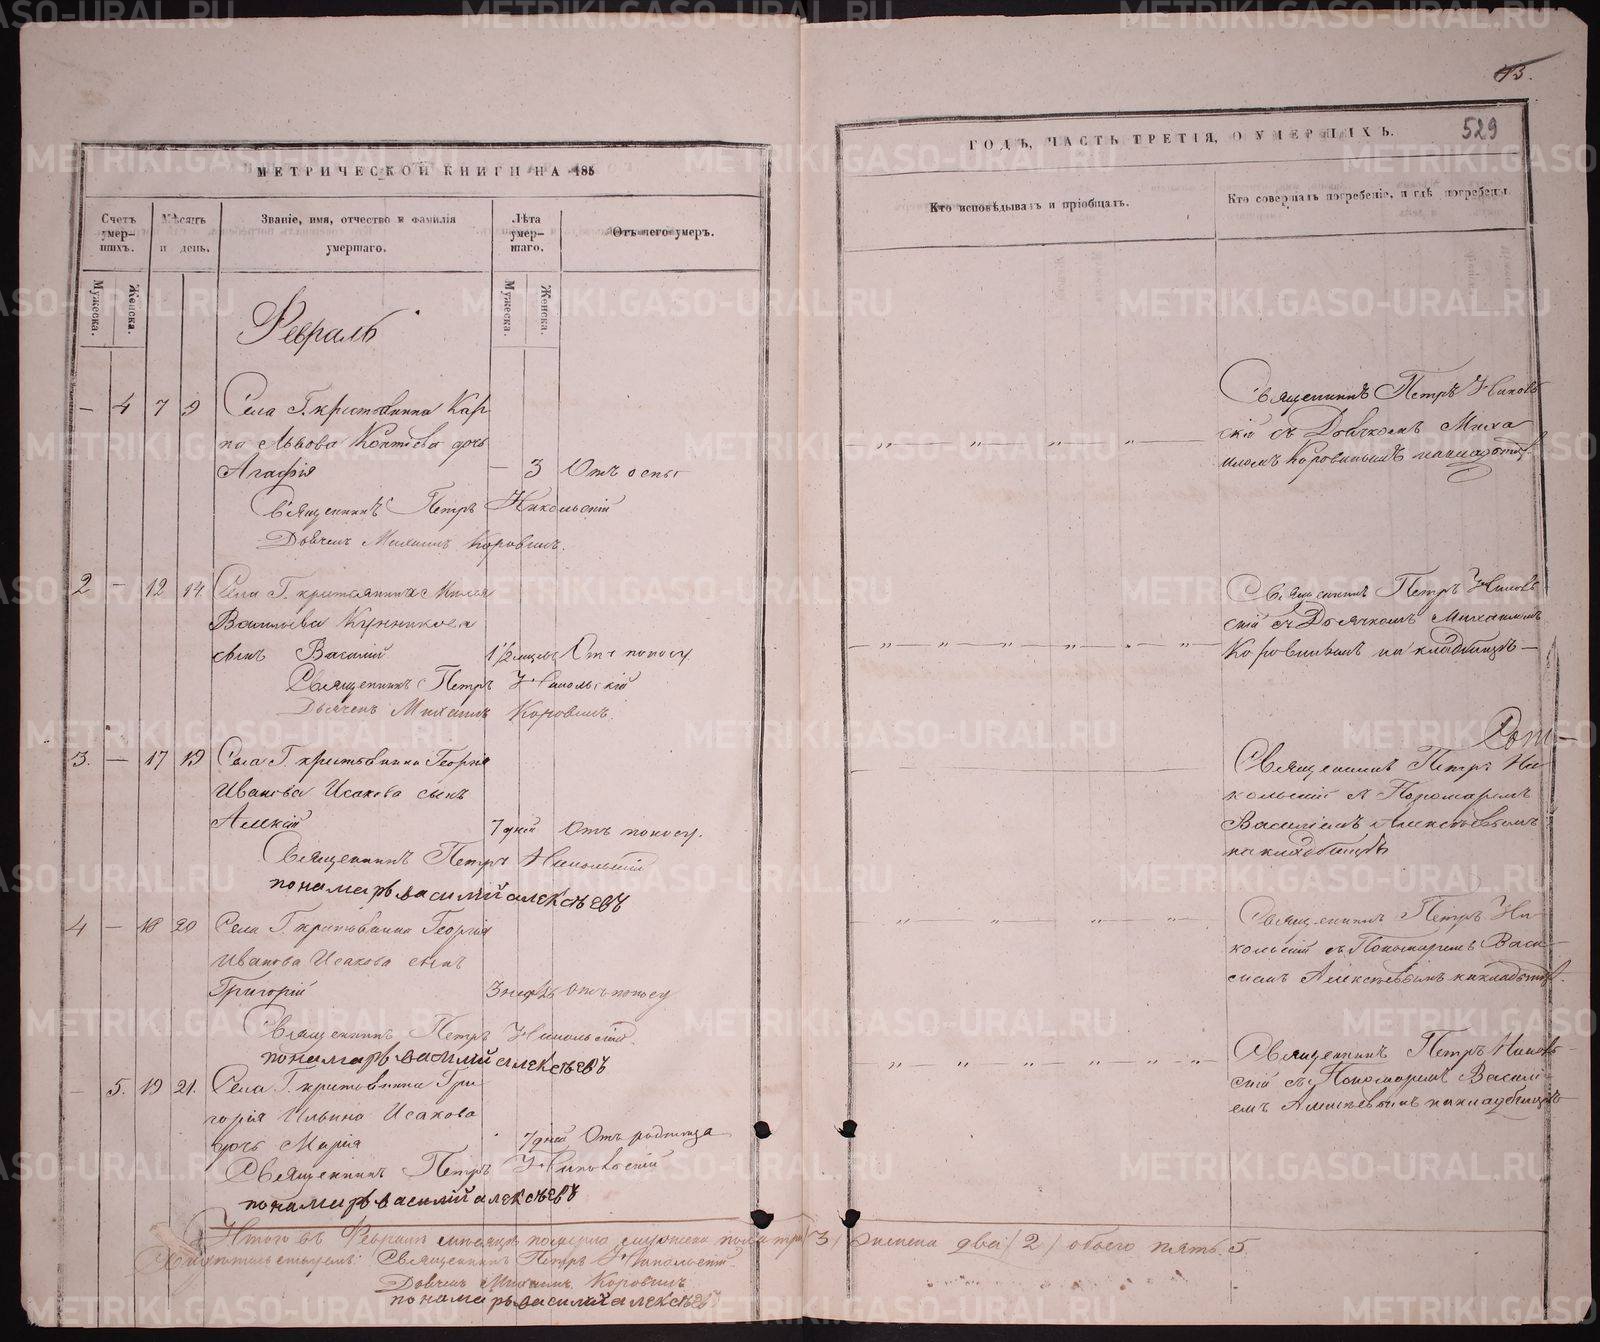 43.
529
МЕТРИЧЕСКОЙ КНИГИ НА 185
ГОДЪ, ЧАСТЬ ТРЕТІЯ, О УМЕРШИХЪ.
Счетъ умер-шихъ.
Мѣсяцъ и день.
Званіе, имя, отчество и фамилія умершаго.
Лѣта умер-шаго.
Отъ чего умеръ.
Кто исповѣдывалъ и пріобщалъ.
Кто совершалъ погребеніе, и гдѣ погребены.
Мужеска.
Женска.
Мужеска.
Женска.
Февраль
– 4 7 9 Села Г. крестьянина Кар
па Львова дочь
Агафія – 3 Отъ оспы
Священникъ Петръ Никольскій
Дьячекъ Михаилъ Коровинъ.
Священникъ Петръ Николь
скій съ Дьячкомъ Миха
иломъ Коровинымъ на кладбищѣ
2 – 12 14 Села Г. крестьянина
Васильева
сынъ Василій 1 1/2 Отъ поносу
Священникъ Петръ Никольскій
Дьячекъ Михаилъ Коровинъ.
Священникъ Петръ Николь
скій съ Дьячкомъ Михаиломъ
Коровинымъ на кладбищѣ –
3. – 17 19 Села Г. крестьянина Георгія
Иванова Исакова сынъ
Алексій 7 дней Отъ поносу.
Священникъ Петръ Никольскій
понамарь василий алексѣевъ
Священникъ Петръ Ни
кольскій съ Пономаремъ
Василіемъ Алексѣевымъ
на кладбищѣ
4 – 18 20 Села Г. крестьянина Георгія
Иванова Исакова сынъ
Григорій 3 Отъ поносу
Священникъ Петръ Никольскій.
понамарь василий алексѣевъ
Священникъ Петръ Ни-
кольскій съ Пономаремъ Васи-
ліемъ Алексѣевымъ на кладбищѣ.
– 5. 19 21. Села Г. крестьянина Гри-
горія Ильина Исакова
дочь Марія 7 дней Отъ родимца
Священникъ Петръ Никольскій
понамарь василий алексѣевъ
Священникъ Петръ Николь-
скій съ Пономаремъ Василі-
емъ Алексѣевымъ на кладбищѣ
Итого въ Февралѣ мѣсяцѣ померло мужеска пола три /3/ женска два /2/ обоего пять. 5.
Священникъ Петръ Никольскій
Дьячекъ Михаилъ Коровинъ
понамарь василий алексѣевъ
METRIKI.GASO-URAL.RU